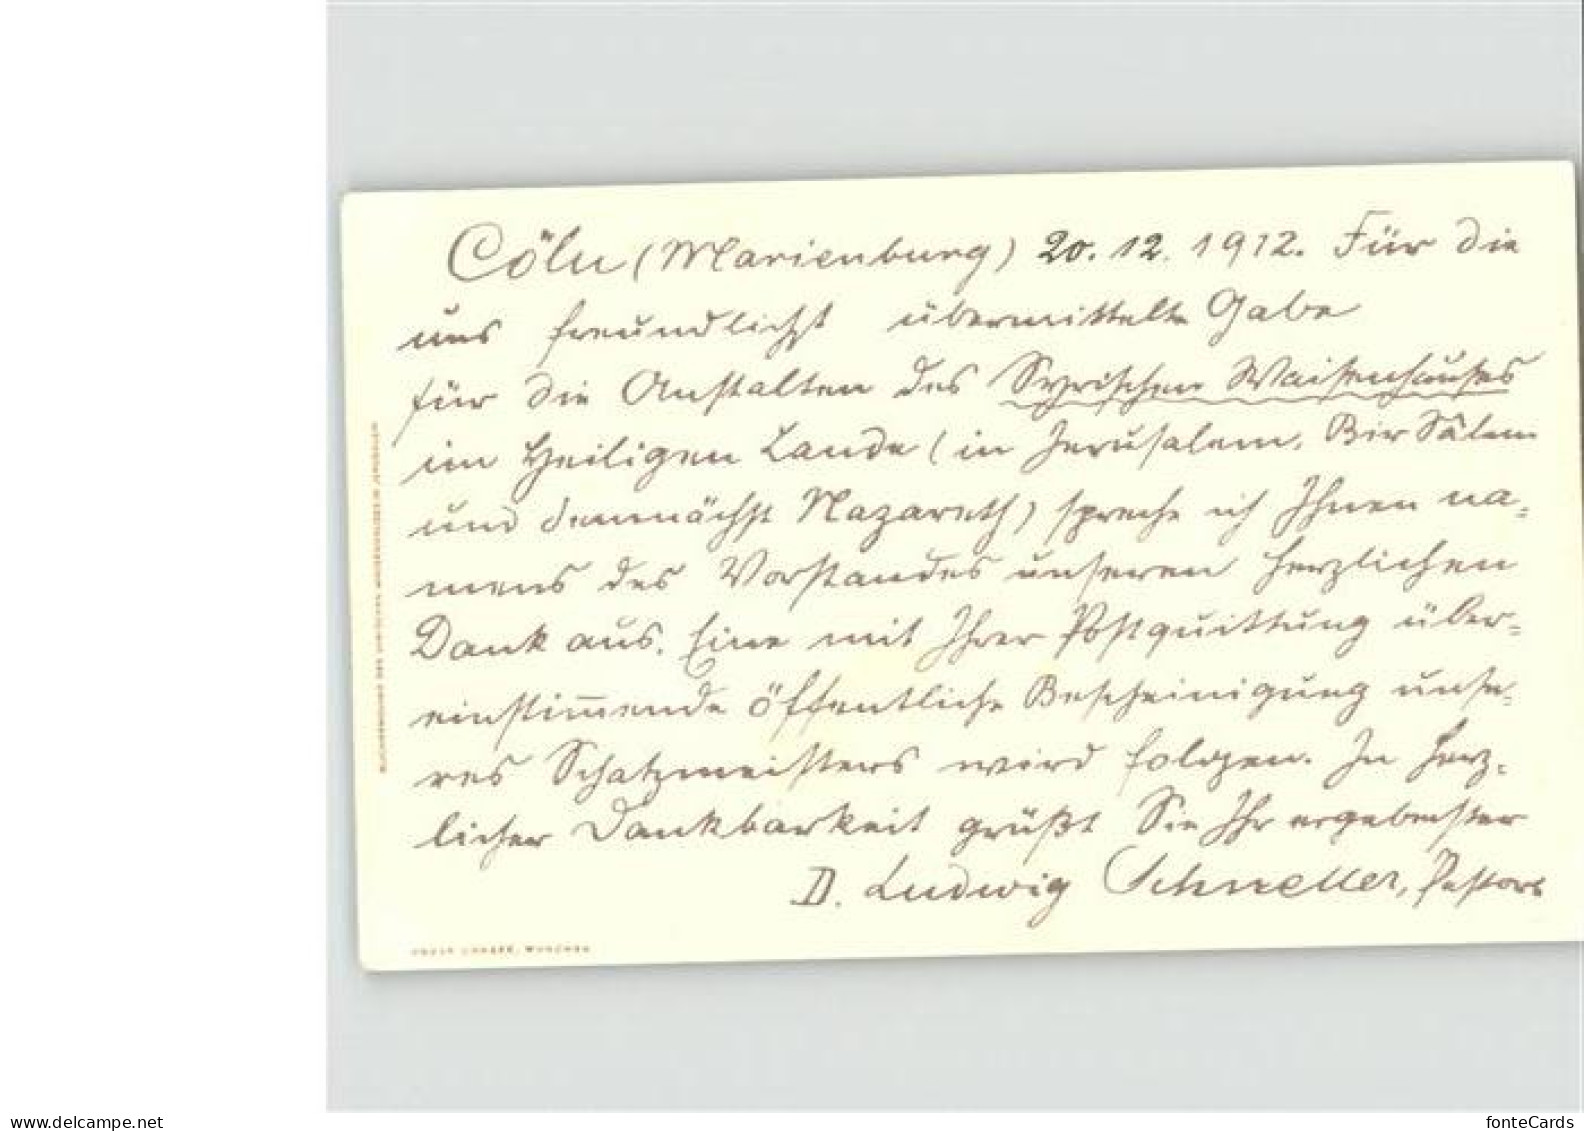 Cöln (Marienburg) 20. 12. 1912. Für die
uns freundlichst übermittelte Gabe
für die Anstalten des Syrischen Waisenhauses
im Heiligen Lande (in Jerusalem, Bir Sâlem
und demnächst Nazareth) spreche ich Ihnen na-
mens des Vorstandes unseren herzlichen
Dank aus. Eine mit Ihrer Postquittung über-
einstimmende öffentliche Bescheinigung unse-
res Schatzmeisters wird folgen. In herz-
licher Dankbarkeit grüßt Sie Ihr ergebenster
D. Ludwig Schneller, Pastor
MÜNCHEN
www.delcampe.net
fonteCards